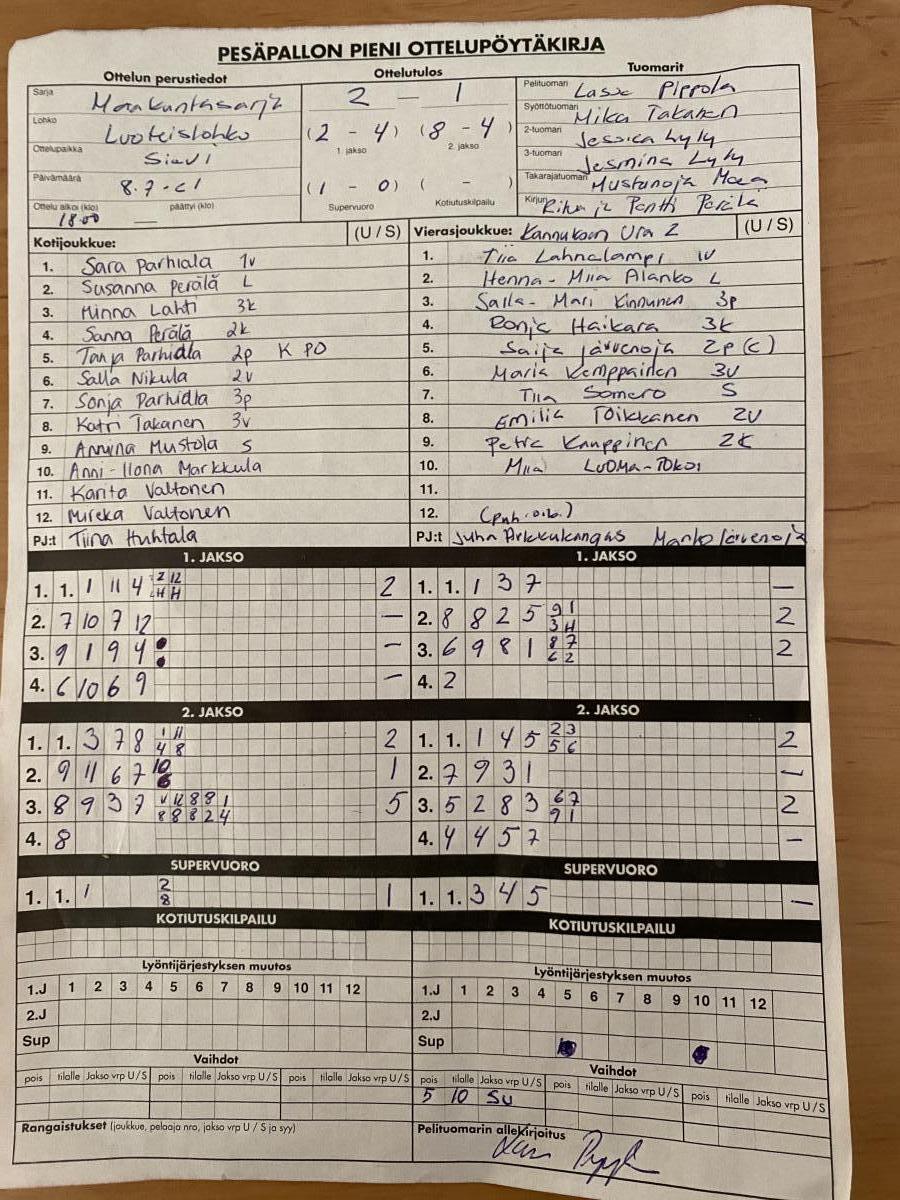 PESÄPALLON PIENI OTTELUPÖYTÄKIRJA
Ottelun perustiedot Ottelutulos Tuomarit
Sarja Maakuntasarja 2 – 1 Pelituomari Lasse Pippola
Lohko Luoteislohko (2 – 4) (8 – 4) Syöttötuomari Mika Takanen
1. jakso 2. jakso 2-tuomari Jessica Lyly
Ottelupaikka Sievi 3-tuomari Jesmina Lyly
Päivämäärä 8.7-21 (1 – 0) ( – ) Takarajatuomari Mustanoja
Ottelu alkoi (klo) 18.00 päättyi (klo) Supervuoro Kotiutuskilpailu Kirjuri Ritva ja Pentti Perälä
Kotijoukkue: (U / S) Vierasjoukkue: Kannuksen Ura 2 (U / S)
1. Sara Parhiala 1v 1. Tiia Lahnalampi 1v
2. Susanna Perälä L 2. Henna-Miia Alanko L
3. Minna Lahti 3k 3. Salla-Mari Kinnunen 3p
4. Sanna Perälä 2k 4. Ronja Haikara 3k
5. Tanja Parhiala 2p K PO 5. Saija Järvenoja 2p (c)
6. Salla Nikula 2v 6. Maria Kemppainen 3v
7. Sonja Parhiala 3p 7. Tiia Somero S
8. Katri Takanen 3v 8. Emilia Toikkanen 2v
9. Anniina Mustola S 9. Petra Kauppinen 2k
10. Anni-Ilona Markkula 10. Miia Luoma-Tokoi
11. Karita Valtonen 11.
12. Mireka Valtonen 12.
PJ:t Tiina Huhtala PJ:t Juha Arkkukangas Marko Järvenoja
1. JAKSO 1. JAKSO
1. 1. 1 11 4 2 12 H H 2 1. 1. 1 3 7 –
2. 7 10 7 12 – 2. 8 8 2 5 9 1 3 H 2
3. 9 1 9 4 – 3. 6 9 8 1 8 7 6 2 2
4. 6 10 6 9 – 4. 2
2. JAKSO 2. JAKSO
1. 1. 3 7 8 1 11 4 8 2 1. 1. 1 4 5 2 3 5 6 2
2. 9 11 6 7 10 1 2. 7 9 3 1 –
3. 8 9 3 7 12 8 8 1 8 8 8 2 4 5 3. 5 2 8 3 6 7 9 1 2
4. 8 4. 4 4 5 7 –
SUPERVUORO SUPERVUORO
1. 1. 1 2 8 1 1. 1. 3 4 5 –
KOTIUTUSKILPAILU KOTIUTUSKILPAILU
Lyöntijärjestyksen muutos Lyöntijärjestyksen muutos
1.J 1 2 3 4 5 6 7 8 9 10 11 12 1.J 1 2 3 4 5 6 7 8 9 10 11 12
2.J 2.J
Sup Sup
Vaihdot Vaihdot
pois tilalle Jakso vrp U / S pois tilalle Jakso vrp U / S pois tilalle Jakso vrp U / S pois tilalle Jakso vrp U / S pois tilalle Jakso vrp U / S pois tilalle Jakso vrp U / S
5 10 Su
Rangaistukset (joukkue, pelaaja nro, jakso vrp U / S ja syy) Pelituomarin allekirjoitus